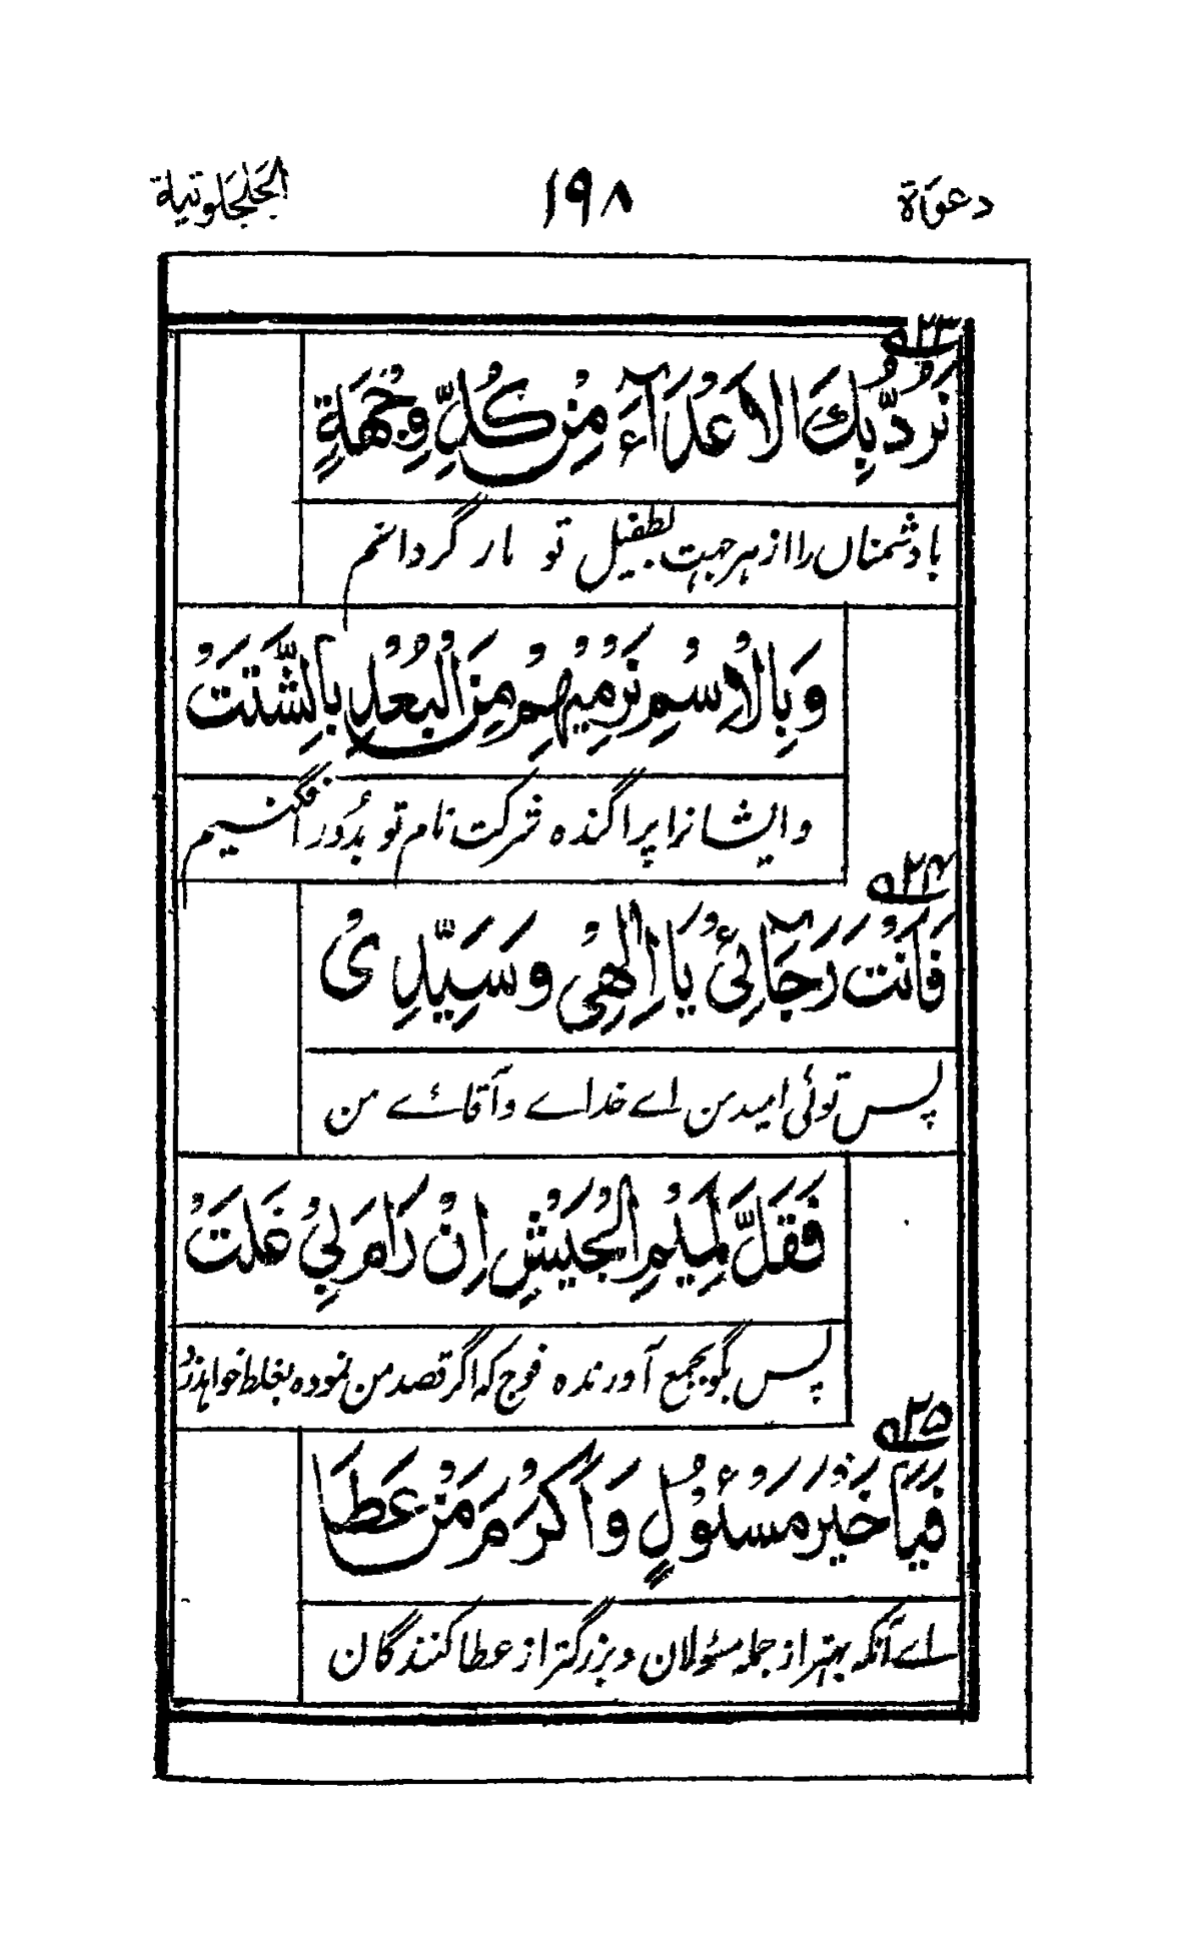 دعوة ١٩٨ الجلجلوتية
٢٣
نَرُدُّ بِكَ الْاَعْدَآءَ مِنْ كُلِّ وِجْهَةٍ
با دشمناں را از ہر جہت بطفیل تو باز گردانم
وَبِالْاِسْمِ نَرْمِيْهِمْ مِنَ الْبُعْدِ بِالشَّتَتْ
و ایشانرا پراگندہ شرکت نام تو بدُور افگنیم
٢٤
فَاَنْتَ رَجَآئِيْ يَا اِلٰهِيْ وَسَيِّدِيْ
پس توئی امید من اے خداے و آقاۓ من
فَقَلَّ لَمِيْمِ الْجَيْشِ اِنْ رَامَ بِيْ غَلَتْ
پس بگو بجمع آورندہ فوج کہ اگر قصد من نمودہ بغلط خواہد
٢٥
فَيَا خَيْرَ مَسْئُوْلٍ وَاَكْرَمَ مَنْ عَطَا
اے آنکہ بہتر از جملہ مسئولان و بزرگتر از عطا کنندگان